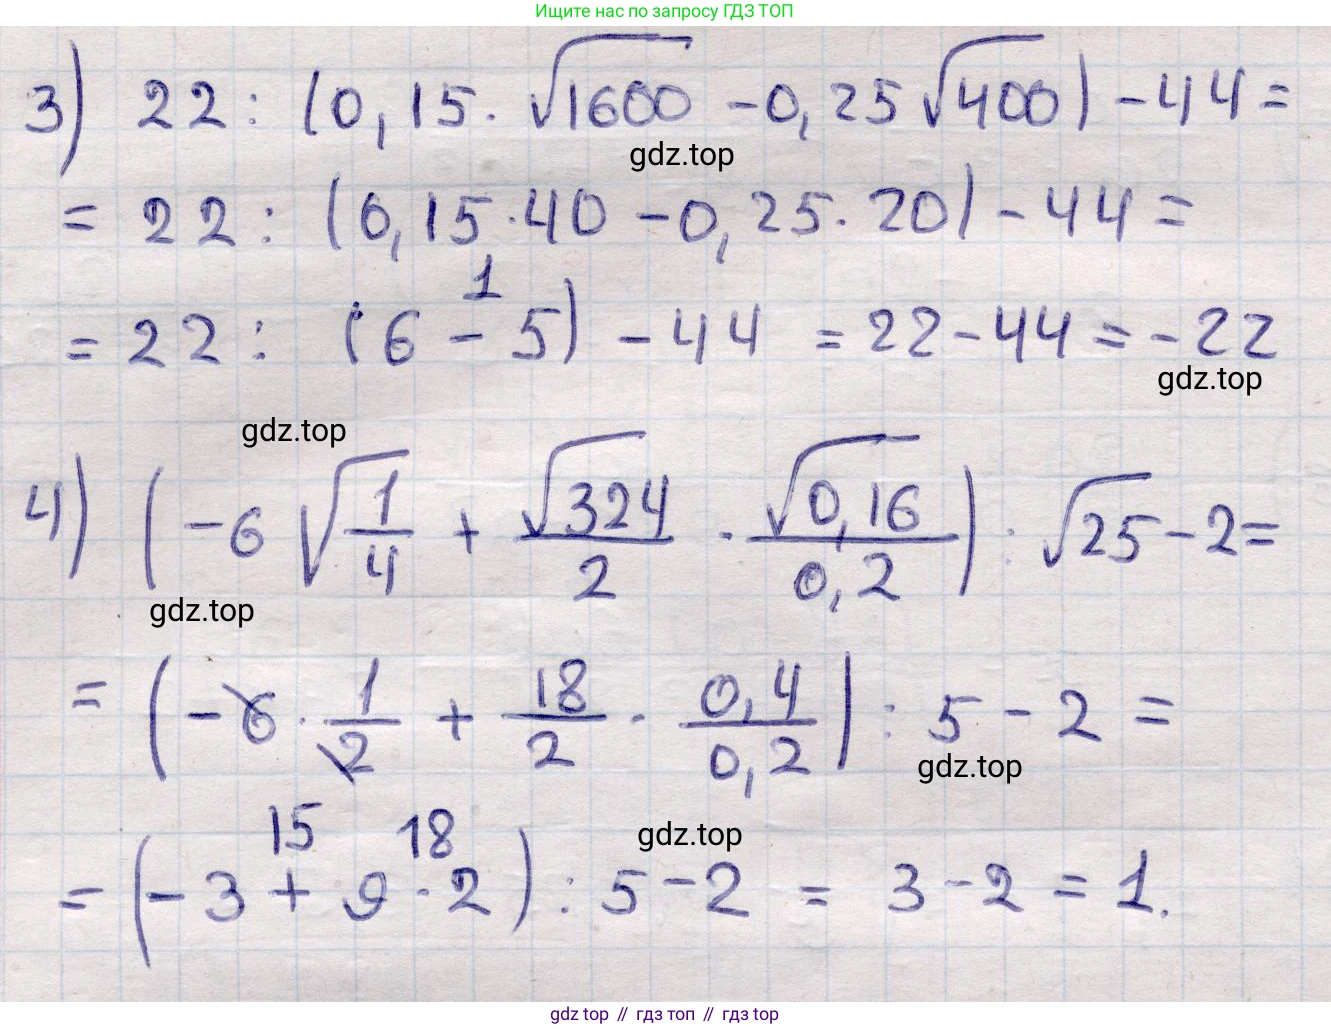 Ищите нас по запросу ГДЗ ТОП
3) 22 : (0,15 · √1600 - 0,25 √400) - 44 =
gdz.top
= 22 : (0,15 · 40 - 0,25 · 20) - 44 =
1
= 22 : (6 - 5) - 44 = 22 - 44 = -22
gdz.top
gdz.top
4) (-6 √(1/4) + √324/2 · √0,16/0,2) : √25 - 2 =
gdz.top
= (-6 · 1/2 + 18/2 · 0,4/0,2) : 5 - 2 =
gdz.top
15 18
gdz.top
= (-3 + 9 · 2) : 5 - 2 = 3 - 2 = 1.
gdz top // гдз топ // gdz top